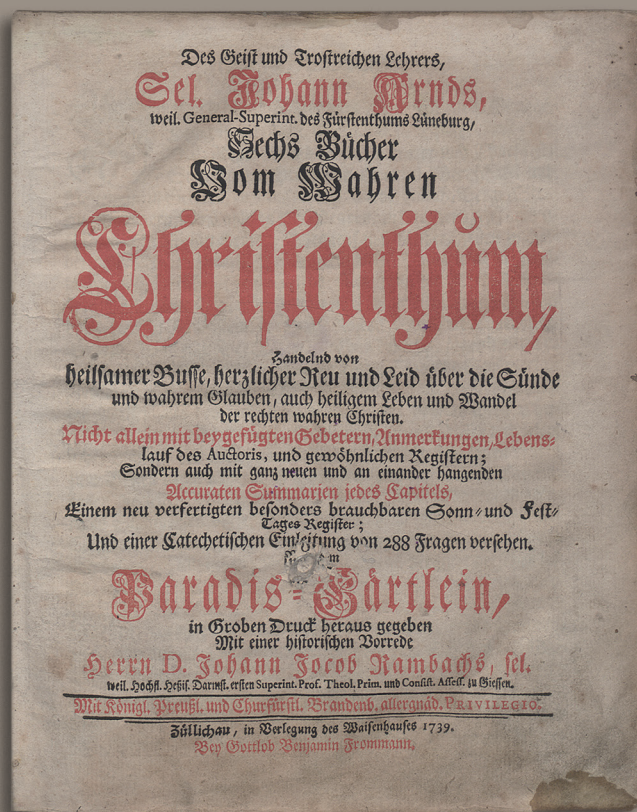 Des Geist und Trostreichen Lehrers,
Sel. Johann Arnds,
weil. General-Superint. des Fürstenthums Lüneburg,
Sechs Bücher
Vom Wahren
Christenthum,
Handelnd von
heilsamer Busse, herzlicher Reu und Leid über die Sünde
und wahrem Glauben, auch heiligem Leben und Wandel
der rechten wahren Christen.
Nicht allein mit beygefügten Gebetern, Anmerkungen, Lebens-
lauf des Auctoris, und gewöhnlichen Registern;
Sondern auch mit ganz neuen und an einander hangenden
Accuraten Summarien jedes Capitels,
Einem neu verfertigten besonders brauchbaren Sonn- und Fest-
Tages Register;
Und einer Catechetischen Einleitung von 288 Fragen versehen.
Paradis-Gärtlein,
in Groben Druck heraus gegeben
Mit einer historischen Vorrede
Herrn D. Johann Jocob Rambachs, sel.
weil. Hochfl. Heßis. Darmst. ersten Superint. Prof. Theol. Prim. und Consist. Assess. zu Giessen.
Mit Königl. Preußl. und Churfürstl. Brandenb. allergnäd. PRIVILEGIO.
Züllichau, in Verlegung des Waisenhauses 1739.
Bey Gottlob Benjamin Frommann.